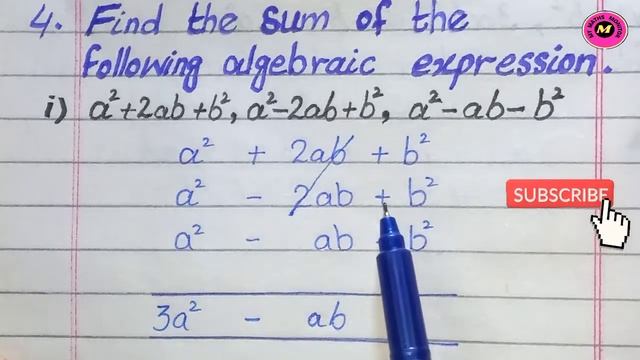 4. Find the sum of the
following algebraic expression.
i) a²+2ab+b², a²-2ab+b², a²-ab-b²
a² + 2ab + b²
a² - 2ab + b²
a² - ab b²
3a² - ab
MY MATHS MONITOR
M
SUBSCRIBE